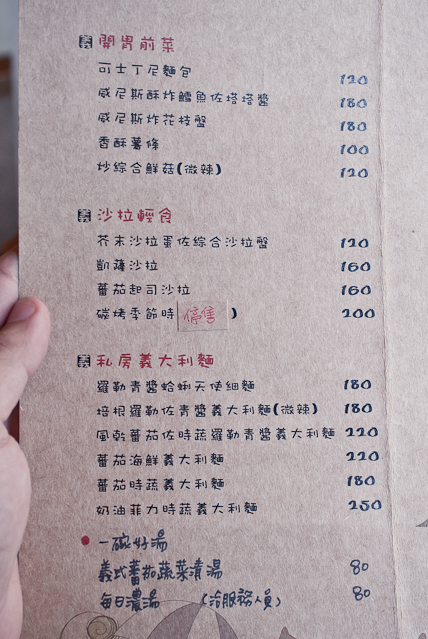 義 開胃前菜
可士丁尼麵包 120
威尼斯酥炸鱈魚佐塔塔醬 180
威尼斯炸花枝盤 180
香酥薯條 100
炒綜合鮮菇(微辣) 120
義 沙拉輕食
芥末沙拉蛋佐綜合沙拉盤 120
凱薩沙拉 160
蕃茄起司沙拉 160
碳烤季節時 停售 ) 200
義 私房義大利麵
羅勒青醬蛤蜊天使細麵 180
培根羅勒佐青醬義大利麵(微辣) 180
風乾蕃茄佐時蔬羅勒青醬義大利麵 220
蕃茄海鮮義大利麵 220
蕃茄時蔬義大利麵 180
奶油菲力時蔬義大利麵 250
一碗好湯
義式蕃茄蔬菜清湯 80
每日濃湯 (洽服務人員) 80